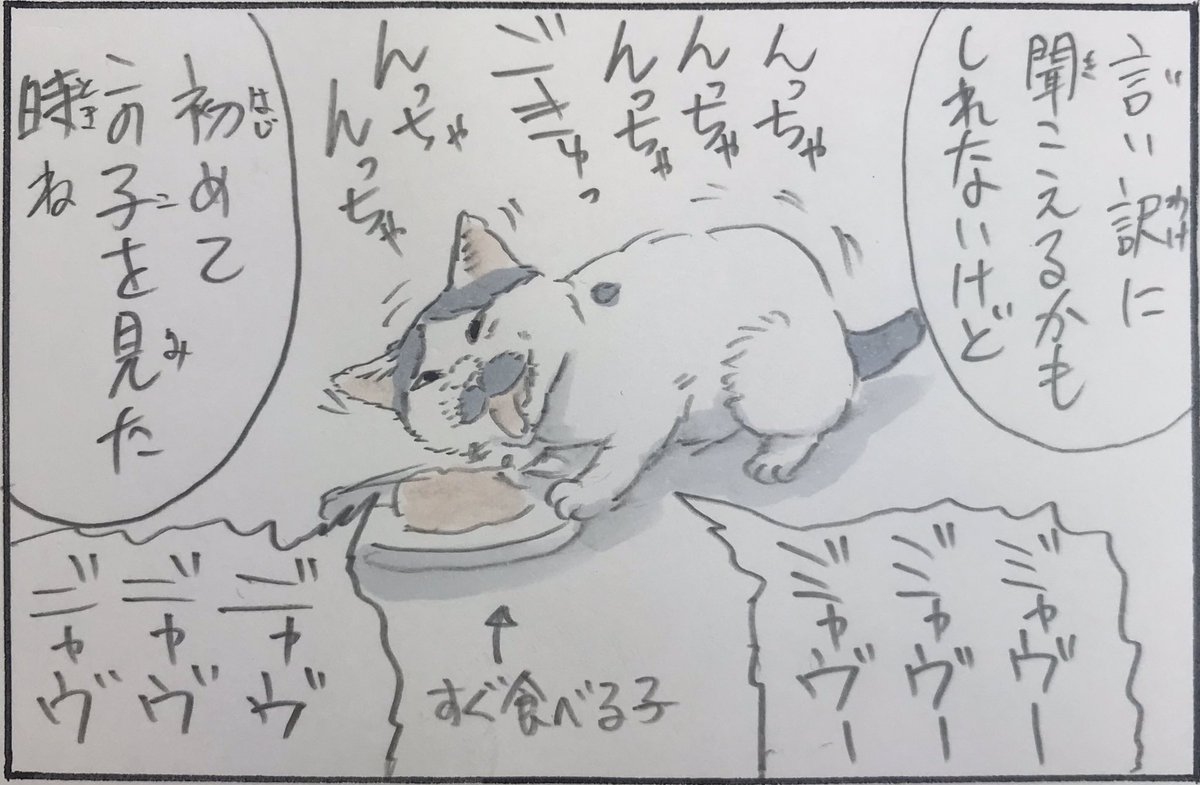 言い訳に
聞こえるかも
しれないけど
んっちゃ
んっちゃ
んっちゃ
ニ゛ギュッ
んっちゃ
んっちゃ
初めて
この子を見た
時ね
ミ゛ャヴー
ミ゛ャヴー
ミ゛ャヴー
すぐ食べる子
ニ゛ャヴ
ニ゛ャヴ
ニ゛ャヴ